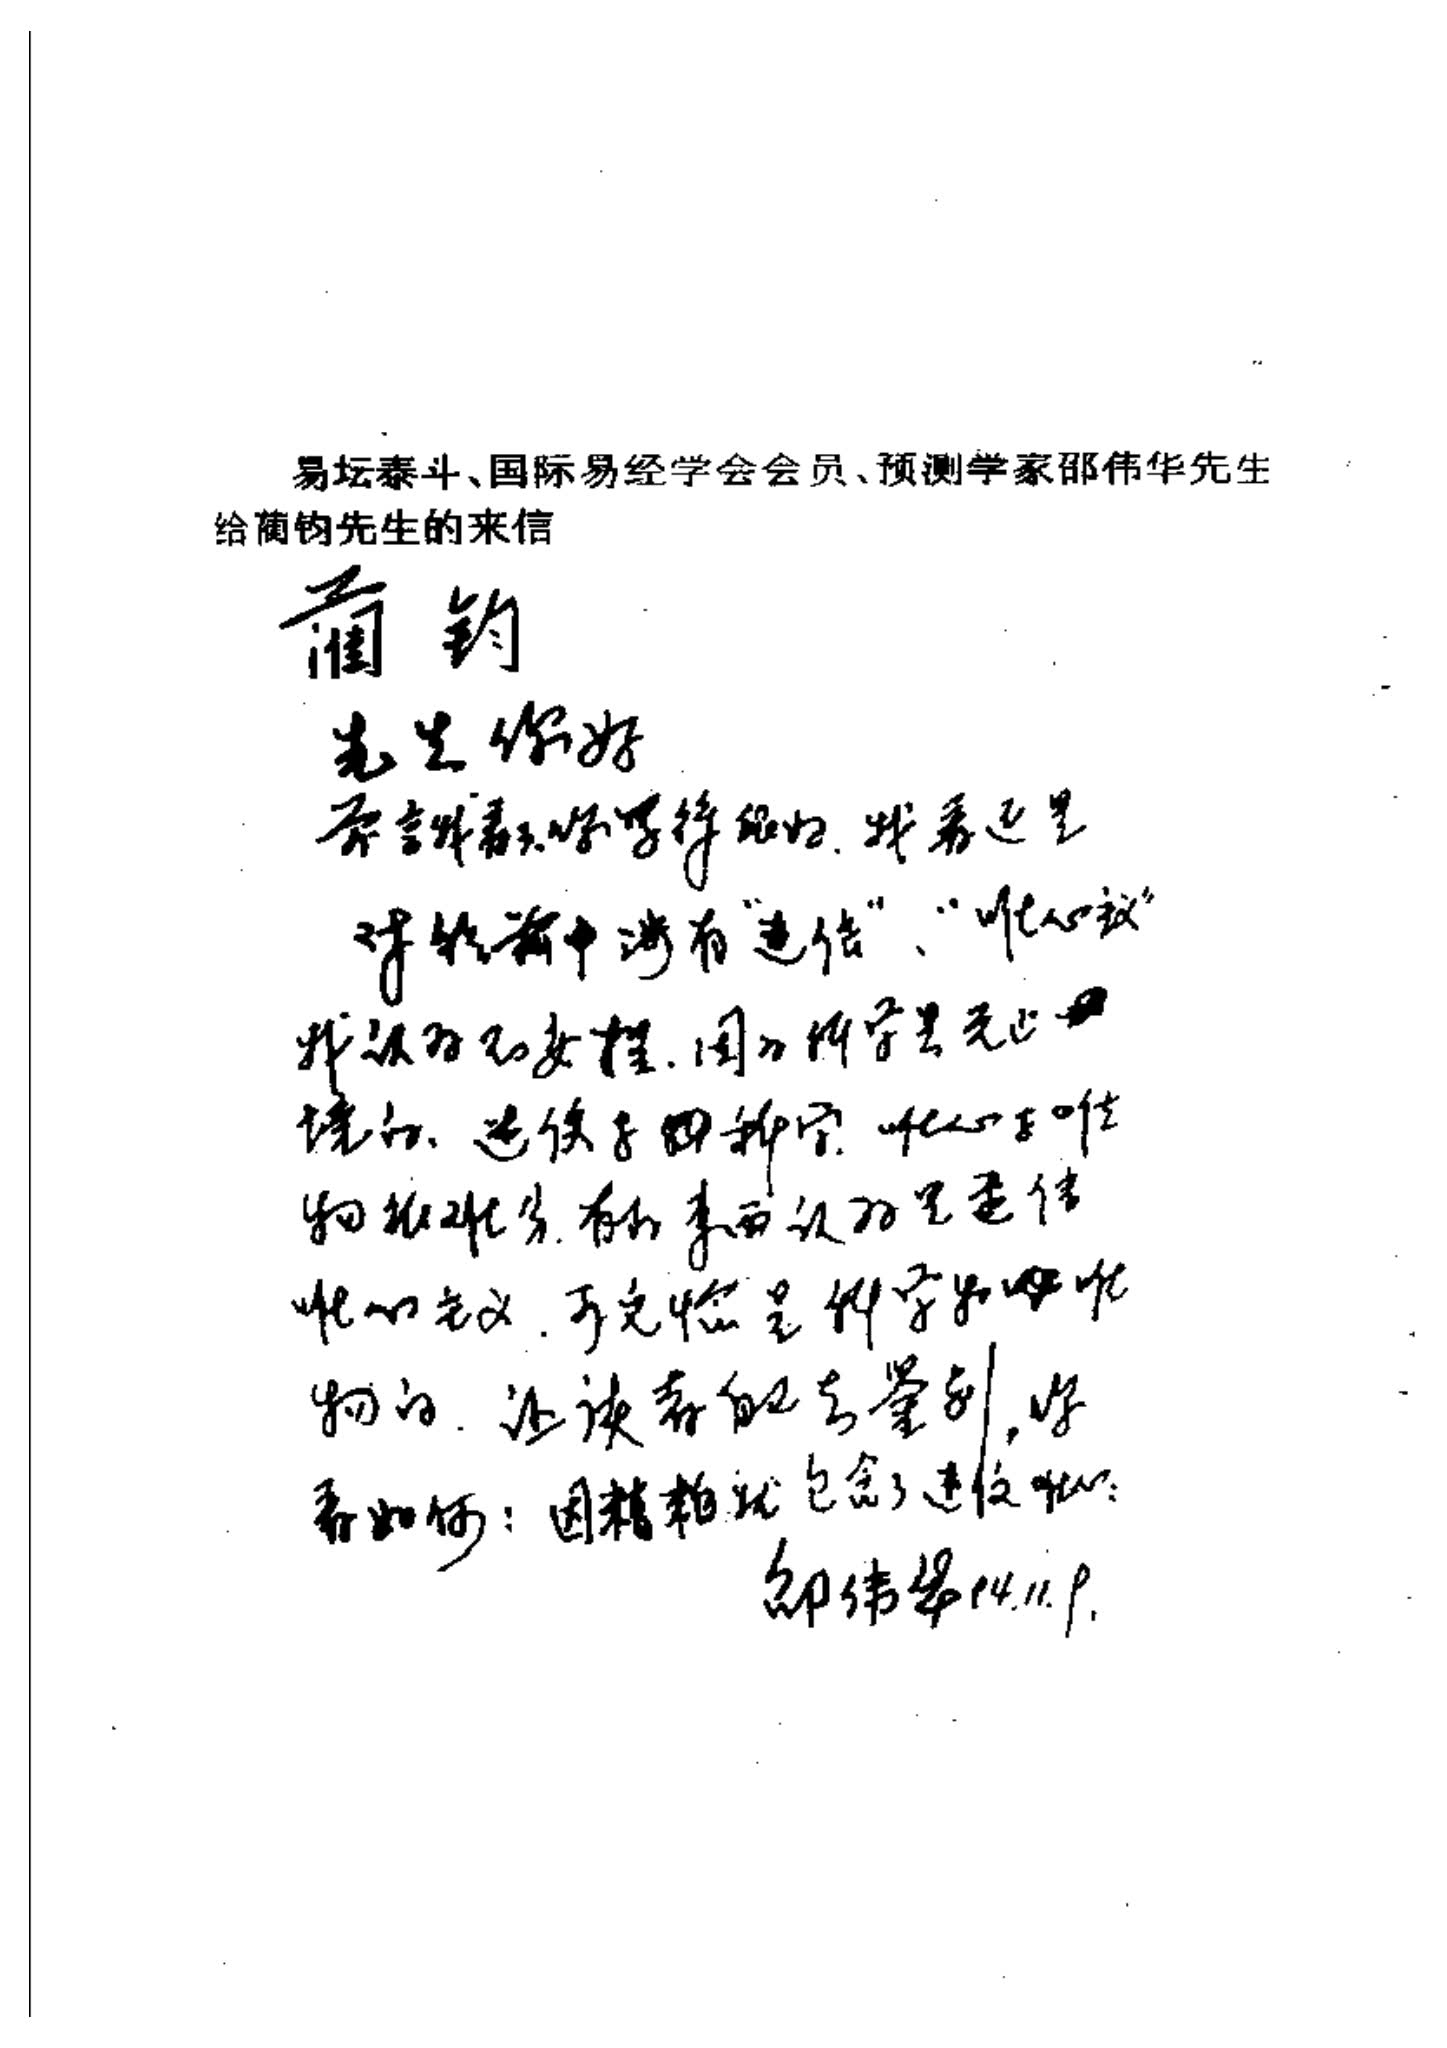 易坛泰斗、国际易经学会会员、预测学家邵伟华先生
给蔺钧先生的来信
蔺 钧
先生你好
序言我看了,你写得很好.我看还是
中没有“迷信”、“唯心主义”
我认为不妥.因为科学是无止
境的.迷信与科学.唯心与唯
物很难分.有的东西认为是迷信
唯心主义.可它恰是科学和唯
物的.让读者自己去鉴别,你
看如何:因精粕就包含了迷信唯心:
邵伟华94.11.9.